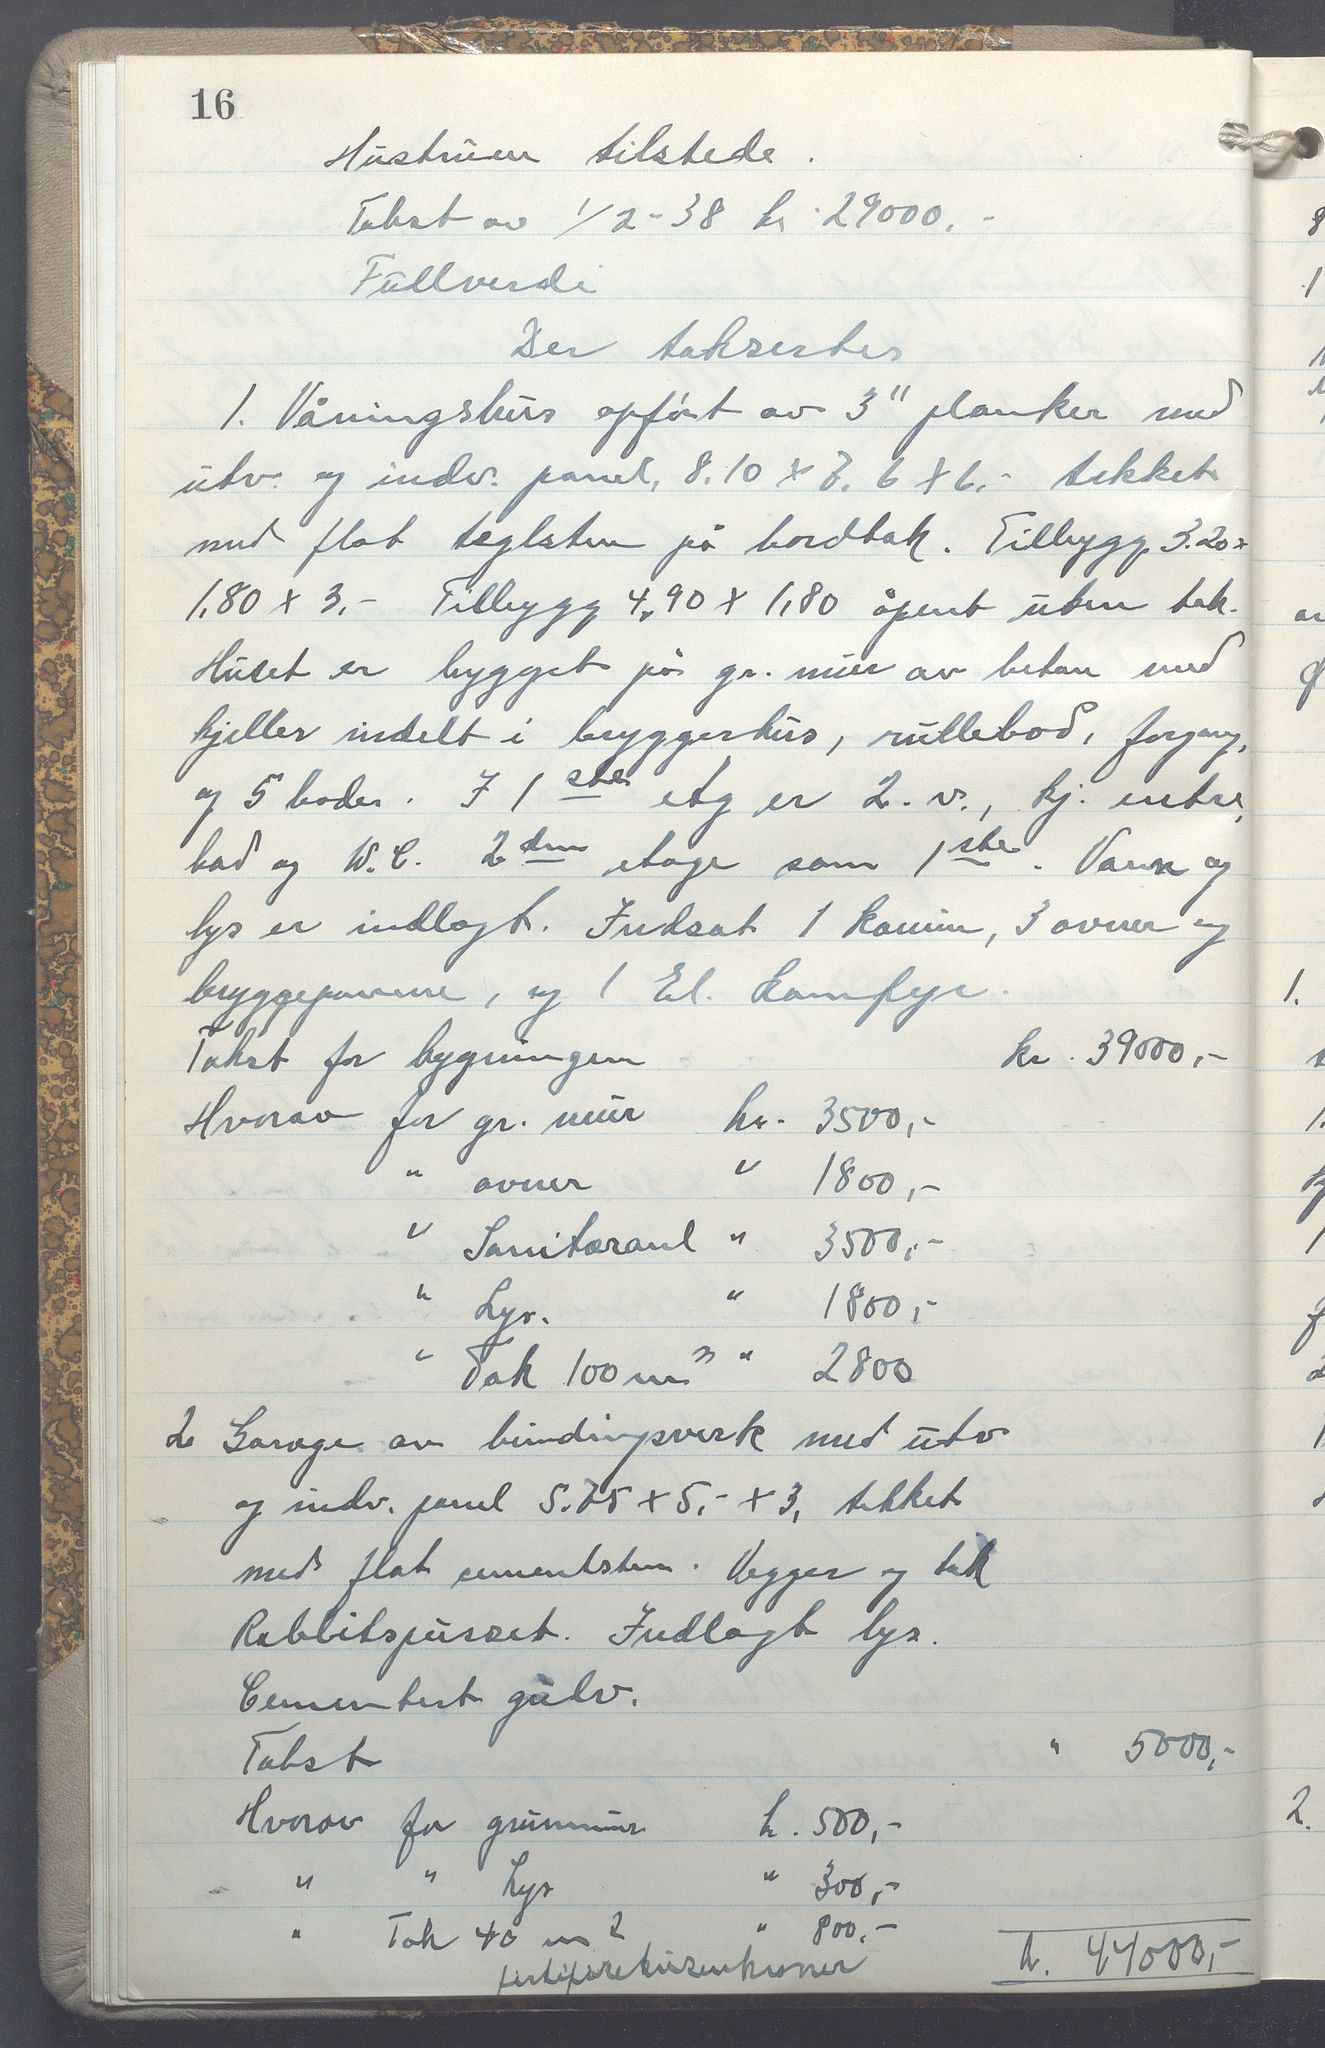 16
Hustruen tilstede.
Takst av 1/2-38 kr. 29000.-
Fullverdi
Der takserter
1. Våningshus opført av 3" planker med
utv. og indv. panel, 8.10 x 7. 6 x 6.- tekket
med flat teglsten på bordtak. Tilbygg 3.20 x
1,80 x 3,- Tilbygg 4,90 x 1,80 åpent uten tak.
Huset er bygget på gr. mur av beton med
kjeller indelt i bryggerhus, rullebod, forgang,
og 5 boder. I 1ste etg er 2. v., kj. entre,
bad og W.C. 2den etage som 1ste. Vann og
lys er indlagt. Indsat 1 kamin, 3 ovner og
bryggepanne, og 1 El. Komfyr.
Takst for bygningen kr. 39000,-
Hvorav for gr. mur kr. 3500,-
" ovner " 1800,-
" Sanitæranl " 3500,-
" Lys. " 1800,-
" Tak 100 m² " 2800
2 Garage av bindingsverk med utv
og indv. panel 5.75 x 5,- x 3, tekket
med flat cementsten. Vegger og tak
Rabbitspusset. Indlagt lys.
Cementert gulv.
Takst " 5000,-
Hvorav for grunmur kr. 500,-
" " Lys " 300,-
" Tak 40 m2 " 800,-
førtifiretusenkroner kr. 44000,-